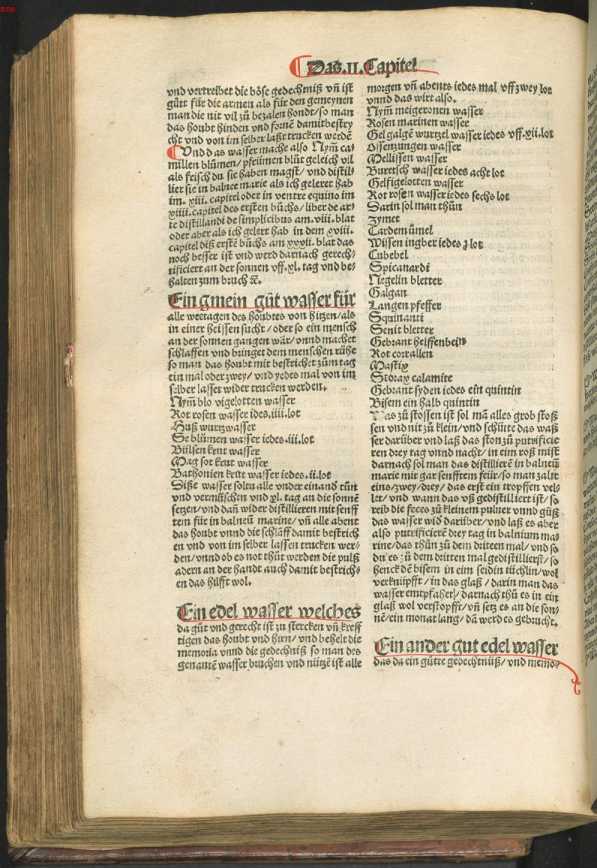 Das .II. Capitel
vnd vertreibet die böse gedechtniß vñ ist
gůt für die armen als für den gemeynen
man die nit vil zů bezalen hondt/ so man
das houbt hinden vnd fornẽ damit bestry
cht vnd von im selber laßt trucken werdẽ
Vnd das wasser mache also Nym ca⸗
millen blůmen/ pfeiimen blůt geleich vil
als frisch du sie haben magst/ vnd distil⸗
lier sie in balnee marie als ich geleret hab
im .xiii. capitel oder in ventre equino im
xiiii. capitel des ersten bůchs/ liber de ar⸗
te distillandi de simplicibus am .viii. blat
oder aber als ich gelert hab in dem .xviii.
capitel diß erstẽ bůchs am xxxvii. blat das
noch besser ist vnd werd darnach gerech⸗
tificiert an der sonnen vff .xl. tag vnd be⸗
halten zum bruch ꝛc.
Ein gmein gůt wasser für
alle wectagen des houbtes von hitzen/ als
in einer heissen sucht/ oder so ein mensch
an der sonnen gangen wär/ vnnd machet
schlaffen vnd bringet dem menschen růhe
so man das houbt mit bestrichet zům tag
ein mal oder zwey/ vnd yedes mal von im
selber lasset wider trucken werden.
Nym blo vigelotten wasser
Rot rosen wasser ides .iiii. lot
Huß wurtz wasser
Se blůmen wasser iedes .iii. lot
Biilsen krut wasser
Mag sot krut wasser
Bathonien krut wasser iedes .ii. lot
Diße wasser solen alle vnder einand tůn
vnd vermisschen vnd xl. tag an die sonnẽ
setzen/ vnd dañ wider distillieren mit senff
tem für in balneũ marine/ vñ alle abent
das houbt vnnd die schläff damit bestrich
en vnd von im selber lassen trucken wer⸗
den/ vnnd ob es not thůt werden die pulß
adern an der handt auch damit bestrich⸗
en das hilfft wol.
Ein edel wasser welches
da gůt vnd gerecht ist zu stercken vñ kreff
tigen das houbt vnd hirn/ vnd behelt die
memoria vnnd die gedechniß so man des
genantẽ wasser bruchen vnd nützẽ ist alle
morgen vñ abents iedes mal vff zwey lot
vnnd das wirt also.
Nym meigeronen wasser
Rosen marinen wasser
Gel galgẽ wurtzel wasser iedes vff .xii. lot
Ossenzungen wasser
Mellissen wasser
Burretsch wasser iedes acht lot
Gelfigelotten wasser
Rot rosen wasser iedes sechs lot
Darin sol man thůn
Zymet
Cardemümel
Wissen ingber iedes ʒ lot
Cubebel
Spicanardi
Negelin bletter
Galgan
Langen pfeffer
Squinanti
Senit bletter
Gebrant helffenbein
Rot corrallen
Mastix
Storax calamite
Gebrant syden iedes ein quintin
Bisem ein halb quintin
Das zů stossen ist sol mã alles grob stoß
sen vnd nit zů klein/ vnd schütte das waß
ser darüber vnd laß das ston zů putrificie
ren drey tag vnnd nacht/ in ein roß mist
darnach sol man das distillierẽ in balneũ
marie mit gar senfftem feür/ so man zalt
eins/ zwey/ drey/ das erst ein tropffen vel⸗
let/ vnd wann das vß gedistilliert ist/ so
reib die feces zů kleinem puluer vnnd güß
das wasser wið darüber/ vnd laß es aber
also putrificierẽ drey tag in balnium ma⸗
rine/ das thůn zů dem dritten mal/ vnd so
du es zů dem dritten mal gedistillierst/ so
henck dẽ bisem in ein seidin tüchlin/ wol
verknüpfft/ in das glaß/ darin man das
wasser emtpfahet/ darnach thů es in ein
glaß wol verstopfft/ vñ setz es an die son⸗
nẽ/ ein monat lang/ dã werd es gebrucht.
Ein ander gut edel wasser
das da ein gůtte gedechtnüß/ vnd memo⸗